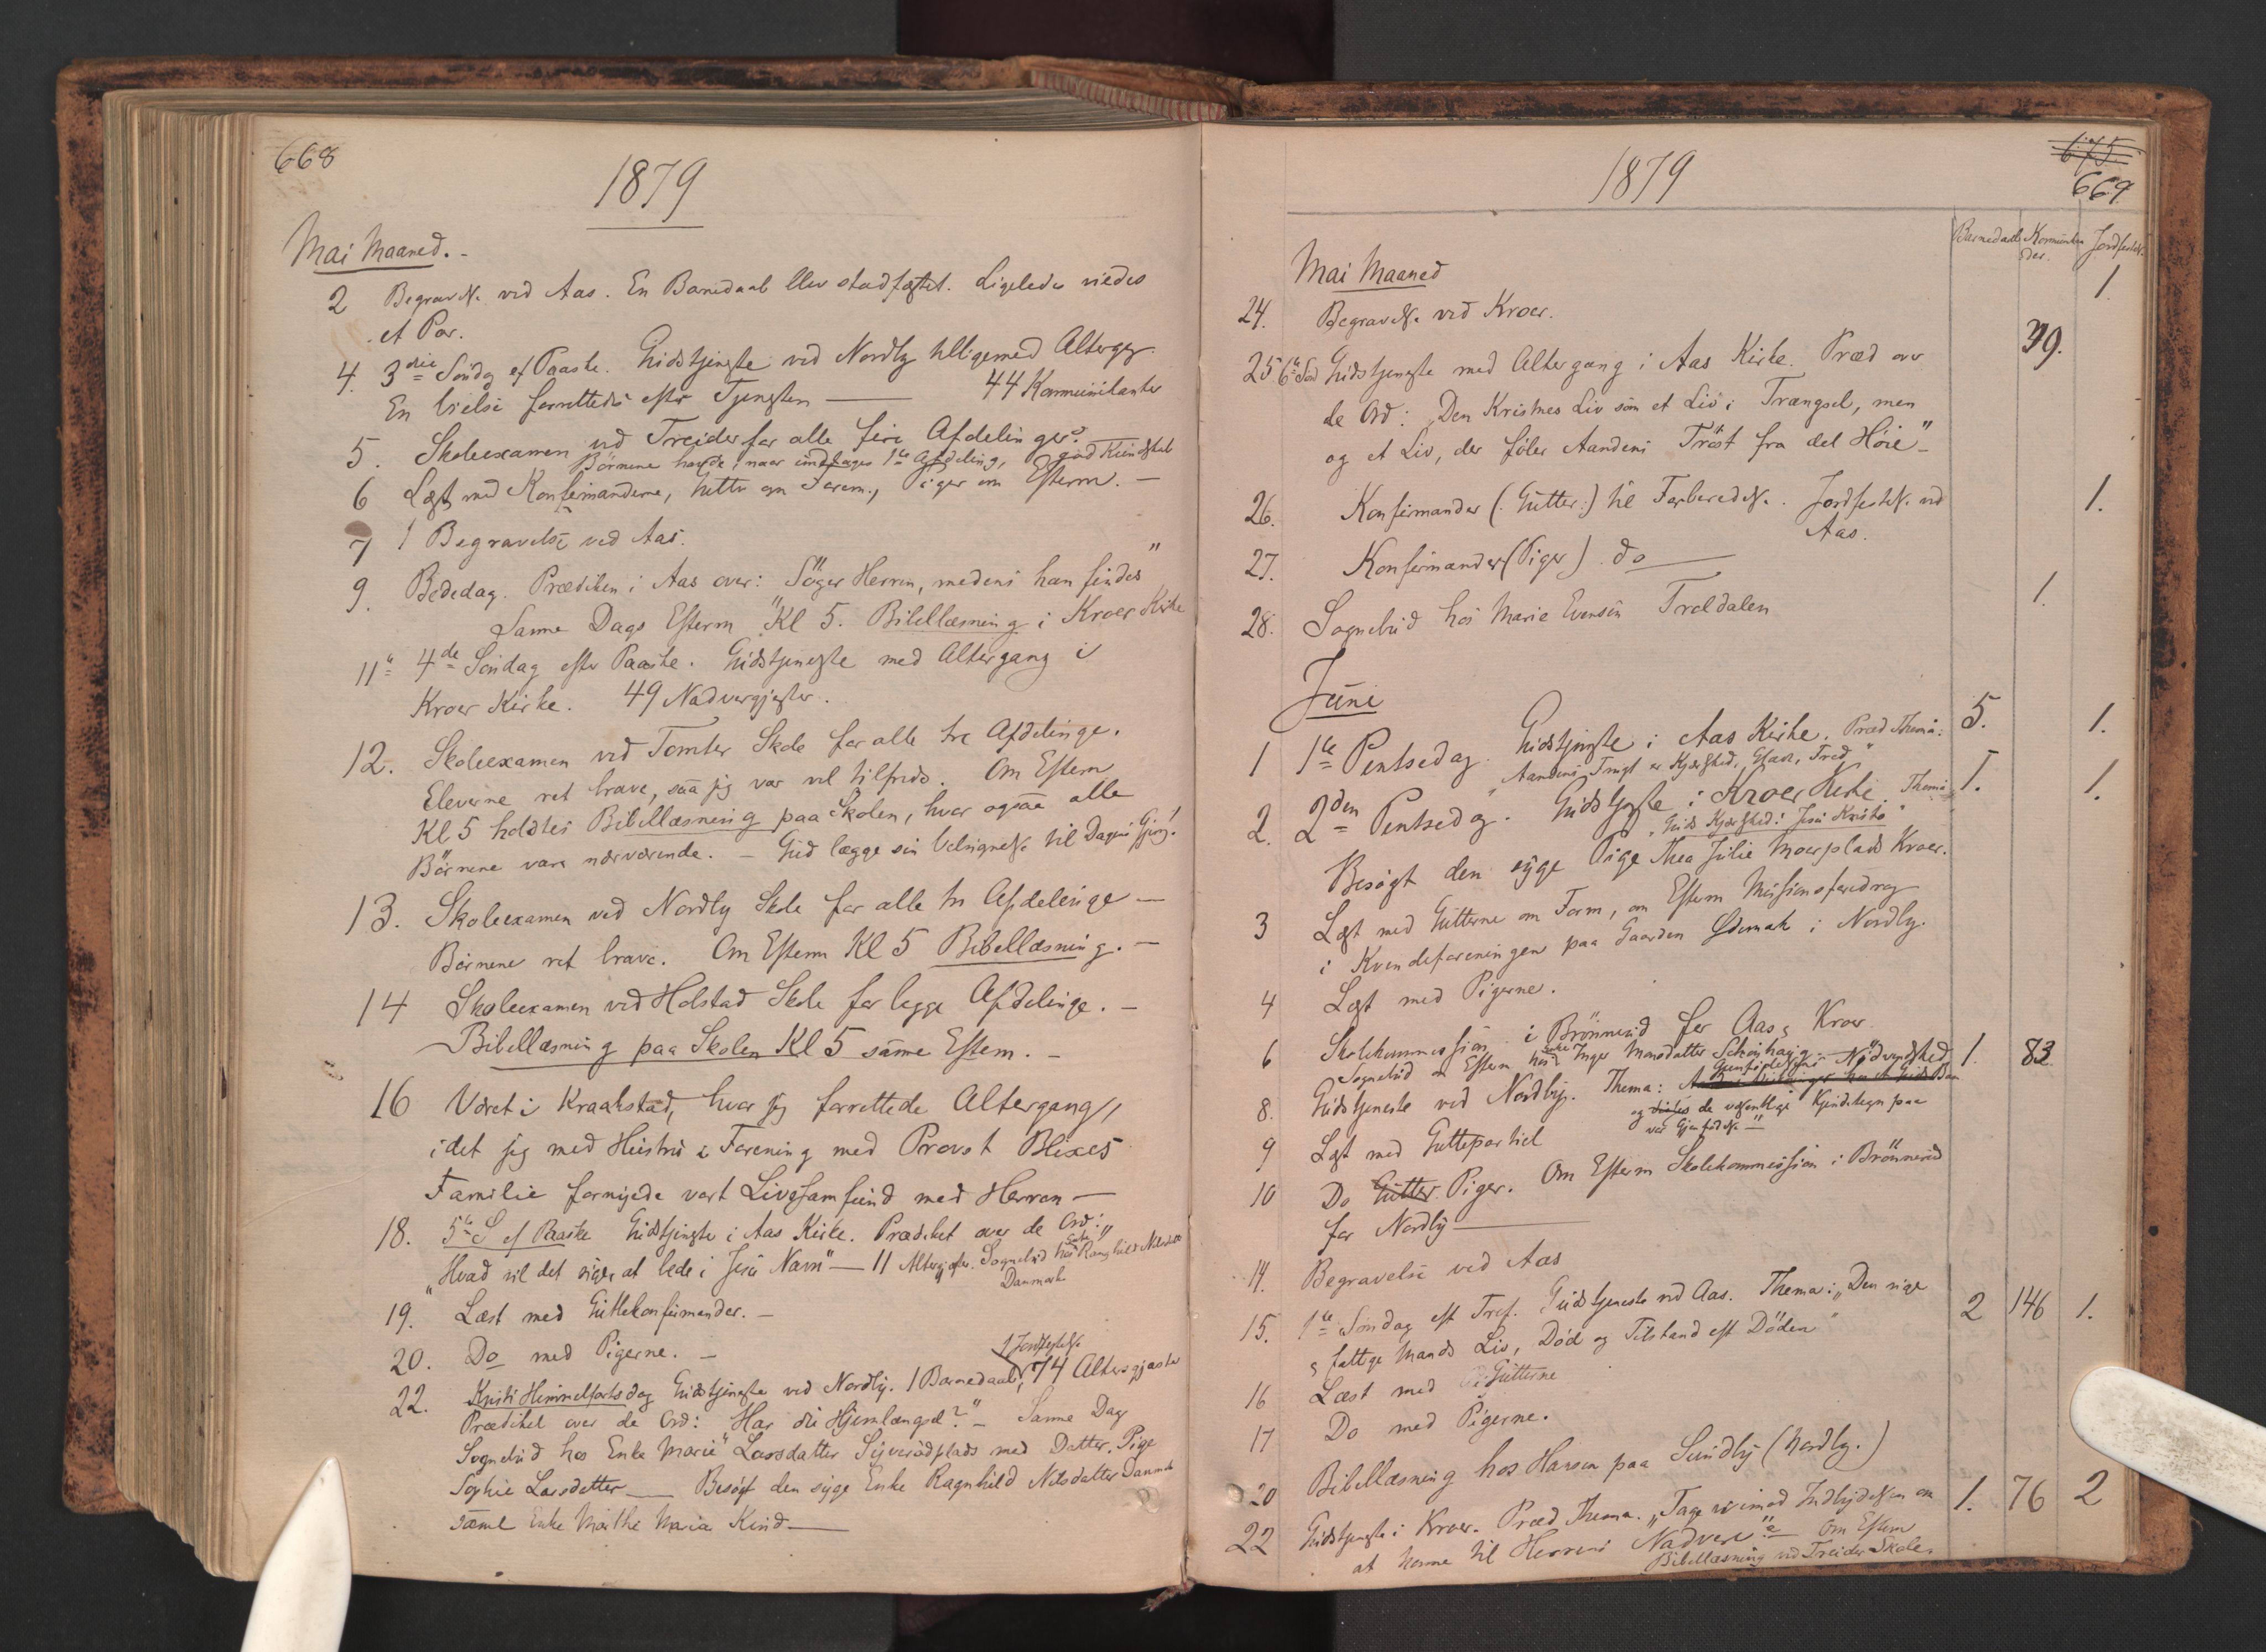 668
1879
Mai Maaned. -
2 Begravelse ved Aas. En Barnedaab blev stadfæstet. Ligeledes viedes
et Par.
4. 3die Söndag ef Paaske. Gudstjeneste ved Nordby tilligemed Altergg.
En Vielse forrettedes efter Tjenesten — 44 Kommunikanter
5. Skoleexamen ved Treider for alle fire Afdelinger.
Börnene havde, naar undtages 1ste Afdeling, god Kundskab
6 Læst med Konfirmanderne, Gutter om Form., Piger om Efterm. —
7 1 Begravelse ved Aas.
9. Bededag. Prædiken i Aas over: Söger Herren, medens han findes"
Samme Dags Efterm Kl 5. Bibellæsning i Kroer Kirke
11te 4de Söndag efter Paaske. Gudstjeneste med Altergang i
Kroer Kirke. 49 Nadvergjester.
12. Skoleexamen ved Tomter Skole for alle tre Afdelinge.
Eleverne ret brave, saa jeg var vel tilfreds. Om Efterm
Kl 5 holdtes Bibellæsning paa Skolen, hvor ogsaa alle
Börnene vare nærværende. – Gud lægge sin Velsignelse til Dagens Gjerng!
13. Skoleexamen ved Nordby Skole for alle tre Afdelinge —
Börnene ret brave. Om Efterm Kl 5 Bibellæsning. —
14 Skoleexamen ved Holstad Skole for begge Afdelinge. —
Bibellæsning paa Skolen Kl 5 samme Efterm. —
16 Været i Kraakstad, hvor jeg forrettede Altergang,
idet jeg med Hustru i Forening med Provst Blixes
Familie fornyede vort Livssamfund med Herren —
18. 5te S ef Paaske Gudstjeneste i Aas Kirke. Prædiket over de Ord:
"Hvad vil det sige, at bede i Jesu Navn" — 11 Altergjester. Sognebud hos Enke Ragnhild Nilsdatter
Danmark
19. Læst med Guttekonfirmander. —
20. Do med Pigerne. —
1 Jordfestelse
22. Kristi Himmelfartsdag Gudstjeneste ved Nordby. 1 Barnedaab, 74 Altergjæster
Prædiket over de Ord: Har du Hjemlængsel?" — Samme Dag
Sognebud hos Enke Marie Larsdatter Syverudplads med Datter, Pige
Sophie Larsdatter — Besögt den syge Enke Ragnhild Nilsdatter Danmark
samt Enke Marthe Maria Kind —
1879
675
669
Barnedaab Kommunikanter. Jordfestels.
Mai Maaned
24. Begravelse ved Kroer. 1
25 6te Sönd Gudstjeneste med Altergang i Aas Kirke. Præd over 39.
de Ord: "Den Kristnes Liv som et Liv i Trængsel, men
og et Liv, der föler Aandens Tröst fra det Höie" —
26. Konfirmander (: Gutter:) til Forberedelse. Jordfestelse ved 1.
Aas.
27. Konfirmander (Piger) do —
28. Sognebud hos Marie Evensen Troldalen 1.
Juni
1 1ste Pentsedag. Gudstjeneste i Aas Kirke. Præd Thema: 5. 1.
"Aandens Frugt er Kjærlighed, Glæde, Fred"
2. 2den Pentsedag. Gudstjeneste i Kroer Kirke. Thema 1. 1.
"Guds Kjærlighed i Jesu Kristo"
Besögt den syge Pige Thea Julie Moerplads Kroer.
3 Læst med Gutterne om Form, om Efterm Missionsforedrag
i Kvindeforeningen paa Gaarden Ødemark i Nordby.
4 Læst med Pigerne.
6 Skolekommission i Brönnerud for Aas & Kroer.
Sognebud om Efterm hos Enke Inger Monsdatter Schönhaug
8. Gudstjeneste ved Nordby. Thema: Gjenfödelsens Nödvendighed 1. 83
og de væsentlige Kjendetegn paa
vor Gjenfödelse —"
9 Læst med Guttepartiet
10 Do Gutter Piger. Om Efterm Skolekommission i Brönnerud
for Nordby —
14. Begravelse ved Aas
15. 1ste Söndag eft Tref. Gudstjeneste ved Aas. Thema: "Den rige 2 146 1.
& fattige Mands Liv, Död og Tilstand eft Döden"
16 Læst med Gutterne
17 Do med Pigerne.
20 Bibellæsning hos Hansen paa Sundby (Nordby.)
22 Gudstjeneste i Kroer. Præd Thema. "Tage vi imod Indbydelsen om 1. 76 2
at komme til Herrens Nadvere"? — Om Efterm
Bibellæsning ved Treider Skole.